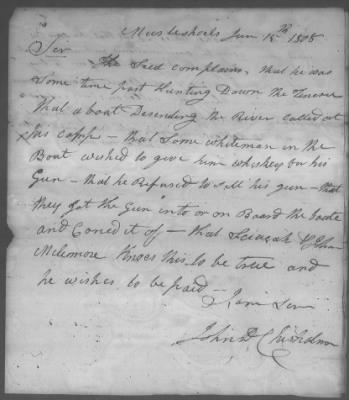 Muscleshoals Jun 15th 1808
Sir
The Seed complains, that he was
Some time past Hunting Down the Tenesee
That a boat Desending the River called at
his camp - that Some whiteman in the
Boat wished to give him whiskey for his
Gun - that he Refused to sell his gun - that
they got the Gun into or on Board the boate
and Caried it of - that & John
McLemore Knoes this to be true and
he wishes to be paid -
I am Sir
John D Chisholm